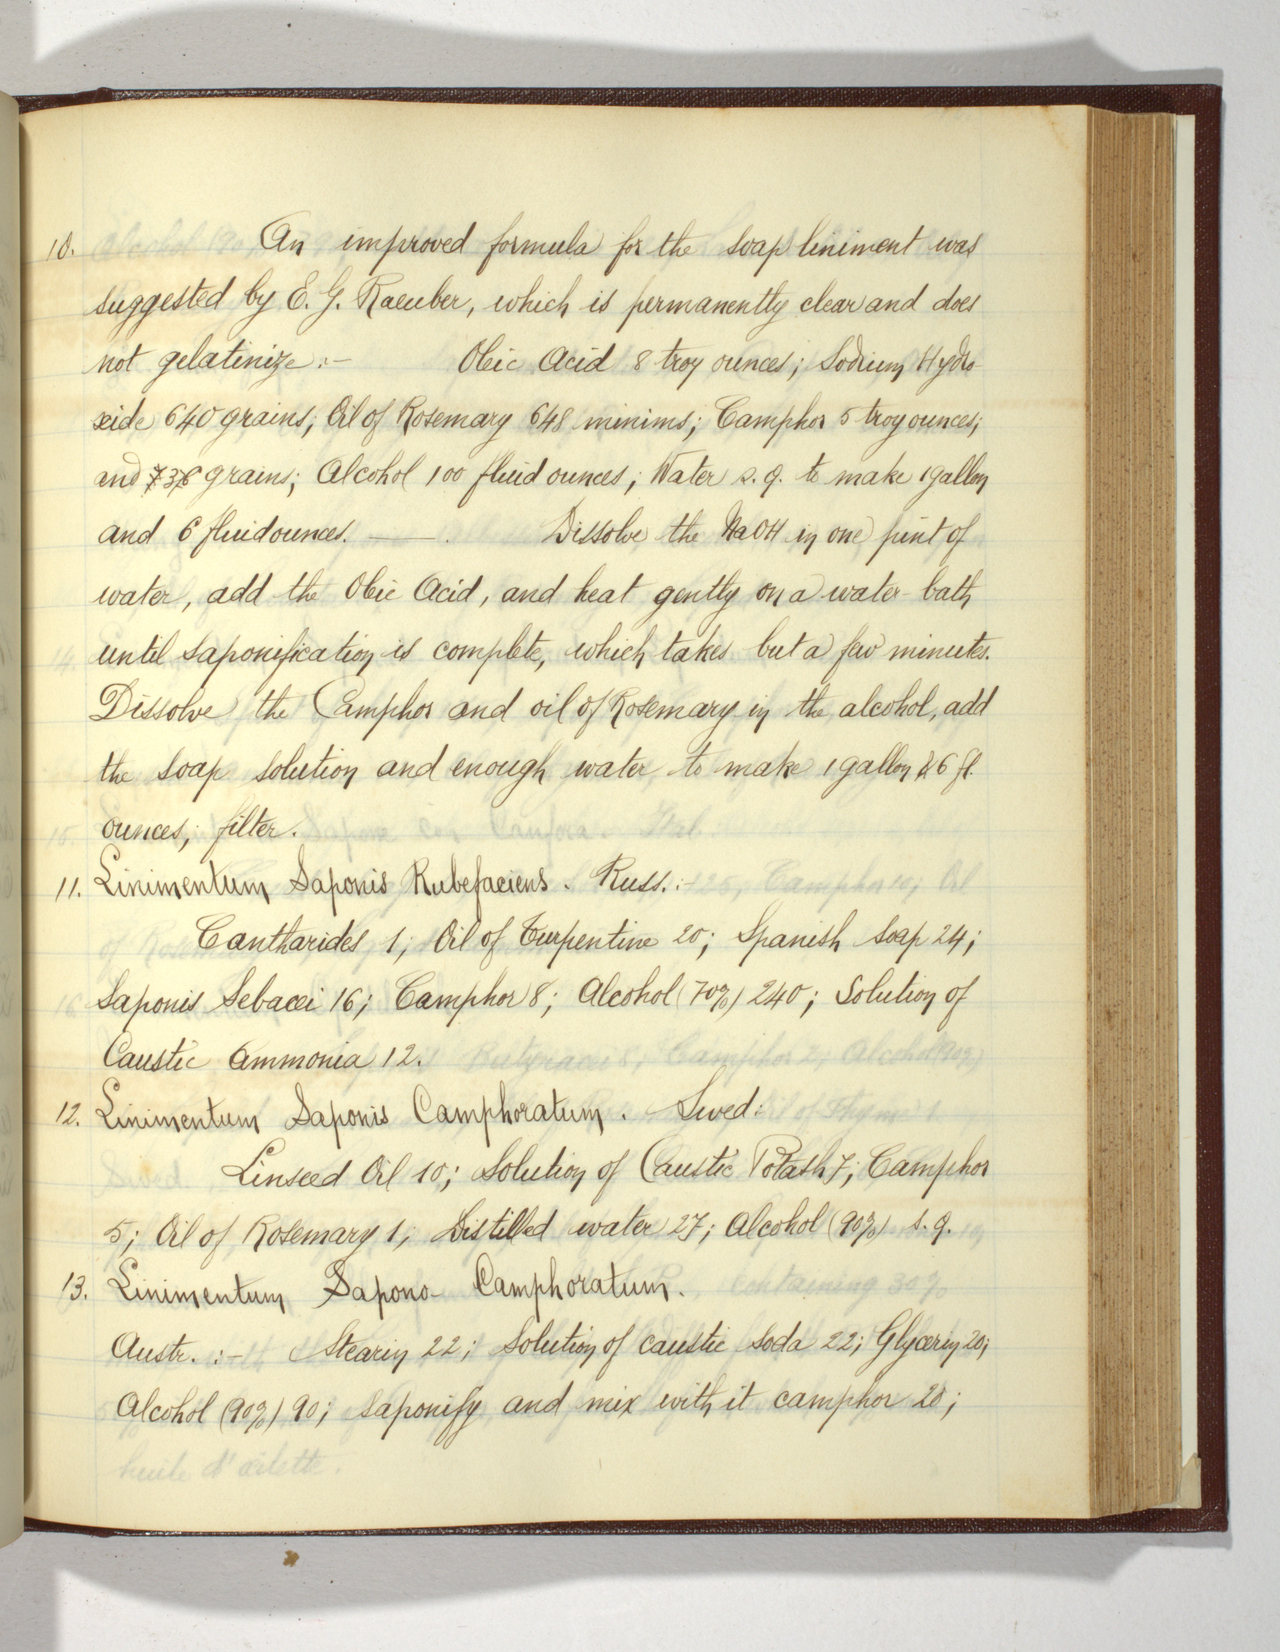 10. An improved formula for the soap liniment was
suggested by E. G. Raeuber, which is permanently clear and does
not gelatinize :- Oleic Acid 8 troy ounces; Sodium Hydro-
xide 640 grains; Oil of Rosemary 648 minims; Camphor 5 troy ounces;
and 736 grains; Alcohol 100 fluid ounces; Water s.q. to make 1 gallon
and 6 fluidounces. ——. Dissolve the NaOH in one pint of
water, add the Oleic Acid, and heat gently on a water-bath
until saponification is complete, which takes but a few minutes.
Dissolve the Camphor and oil of Rosemary in the alcohol, add
the soap solution and enough water to make 1 gallon & 6 fl.
ounces; filter.
11. Linimentum Saponis Rubefaciens. Russ. :-
Cantharides 1; Oil of Turpentine 20; Spanish Soap 24;
Saponis Sebacei 16; Camphor 8; Alcohol (70%) 240; Solution of
Caustic Ammonia 12.
12. Linimentum Saponis Camphoratum. Swed:
Linseed Oil 10; Solution of Caustic Potash 7; Camphor
5; Oil of Rosemary 1; Distilled water 27; Alcohol (90%) s.q.
13. Linimentum Sapono-Camphoratum.
Austr. :- Stearin 22; Solution of caustic Soda 22; Glycerin 20;
Alcohol (90%) 90; saponify and mix with it camphor 20;